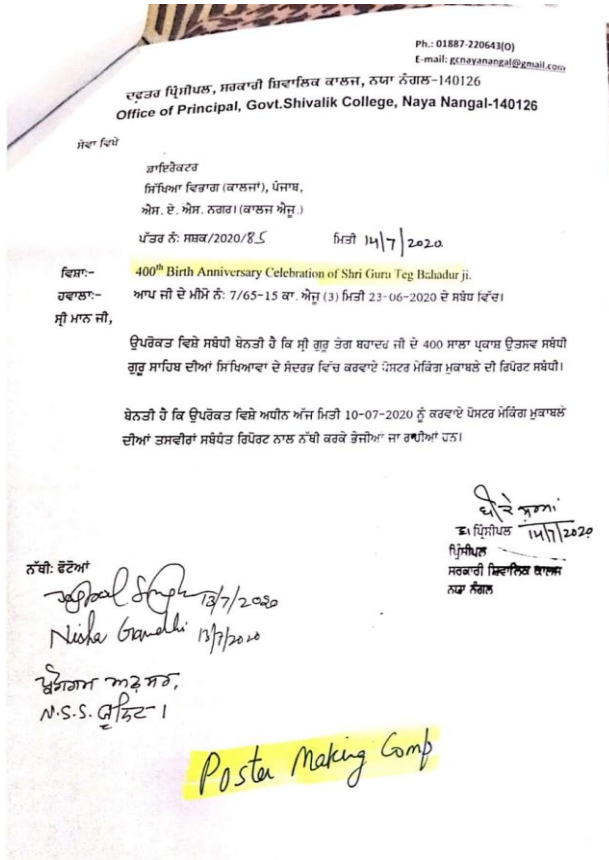 Ph.: 01887-220643(O)
E-mail: gcnayanangal@gmail.com
ਦਫਤਰ ਪ੍ਰਿੰਸੀਪਲ, ਸਰਕਾਰੀ ਸ਼ਿਵਾਲਿਕ ਕਾਲਜ, ਨਯਾ ਨੰਗਲ-140126
Office of Principal, Govt.Shivalik College, Naya Nangal-140126
ਸੇਵਾ ਵਿਖੇ
ਡਾਇਰੈਕਟਰ
ਸਿੱਖਿਆ ਵਿਭਾਗ (ਕਾਲਜਾਂ), ਪੰਜਾਬ,
ਐਸ. ਏ. ਐਸ. ਨਗਰ। (ਕਾਲਜ ਐਜੂ.)
ਪੱਤਰ ਨੰ: ਸਸ਼ਕ/2020/85 ਮਿਤੀ 14/7/2020
ਵਿਸ਼ਾ:- 400th Birth Anniversary Celebration of Shri Guru Teg Bahadur ji.
ਹਵਾਲਾ:- ਆਪ ਜੀ ਦੇ ਮੀਮੋ ਨੰ: 7/65-15 ਕਾ. ਐਜੂ (3) ਮਿਤੀ 23-06-2020 ਦੇ ਸਬੰਧ ਵਿੱਚ।
ਸ੍ਰੀ ਮਾਨ ਜੀ,
ਉਪਰੋਕਤ ਵਿਸ਼ੇ ਸਬੰਧੀ ਬੇਨਤੀ ਹੈ ਕਿ ਸ੍ਰੀ ਗੁਰੂ ਤੇਗ ਬਹਾਦਰ ਜੀ ਦੇ 400 ਸਾਲਾ ਪ੍ਰਕਾਸ਼ ਉਤਸਵ ਸਬੰਧੀ
ਗੁਰੂ ਸਾਹਿਬ ਦੀਆਂ ਸਿੱਖਿਆਵਾ ਦੇ ਸੰਦਰਭ ਵਿੱਚ ਕਰਵਾਏ ਪੋਸਟਰ ਮੇਕਿੰਗ ਮੁਕਾਬਲੇ ਦੀ ਰਿਪੋਰਟ ਸਬੰਧੀ।
ਬੇਨਤੀ ਹੈ ਕਿ ਉਪਰੋਕਤ ਵਿਸ਼ੇ ਅਧੀਨ ਅੱਜ ਮਿਤੀ 10-07-2020 ਨੂੰ ਕਰਵਾਏ ਪੋਸਟਰ ਮੇਕਿੰਗ ਮੁਕਾਬਲੇ
ਦੀਆਂ ਤਸਵੀਰਾਂ ਸਬੰਧਤ ਰਿਪੋਰਟ ਨਾਲ ਨੱਥੀ ਕਰਕੇ ਭੇਜੀਆਂ ਜਾ ਰਹੀਆਂ ਹਨ।
ਸ਼ਰਮਾਂ
ਪ੍ਰਿੰਸੀਪਲ 14/7/2020
ਪ੍ਰਿੰਸੀਪਲ
ਸਰਕਾਰੀ ਸ਼ਿਵਾਲਿਕ ਕਾਲਜ
ਨਯਾ ਨੰਗਲ
ਨੱਥੀ: ਫੋਟੋਆਂ
Singh 13/7/2020
Nisha Gandhi 13/7/2020
ਪ੍ਰੋਗਰਾਮ ਅਫ਼ਸਰ,
N.S.S. ਯੂਨਿਟ-1
Poster Making Comp